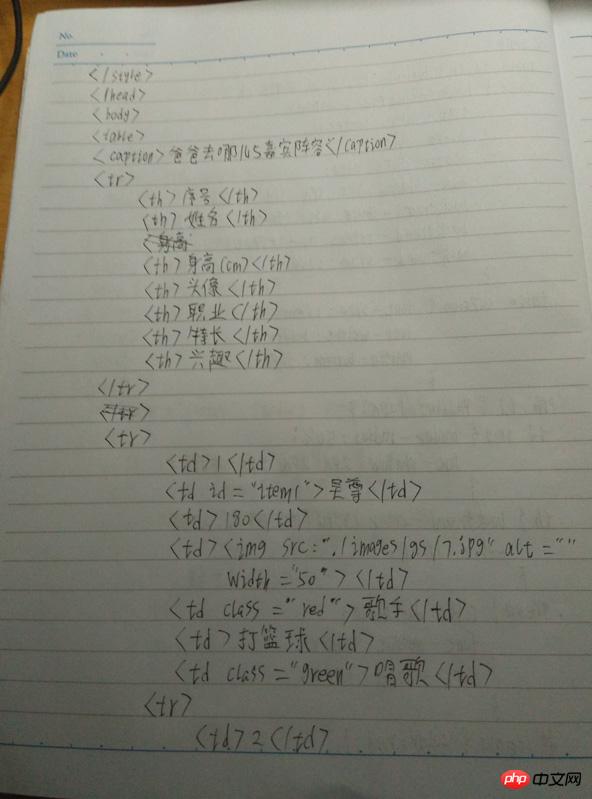 No.
Date
</style>
</head>
<body>
<table>
<caption>爸爸去哪儿5嘉宾阵容</caption>
<tr>
<th>序号</th>
<th>姓名</th>
<身高
<th>身高(cm)</th>
<th>头像</th>
<th>职业</th>
<th>特长</th>
<th>兴趣</th>
</tr>
</tr>
<tr>
<td>1</td>
<td id="item1">吴尊</td>
<td>180</td>
<td><img src="./images/gs/7.jpg" alt=""
width="50"></td>
<td class="red">歌手</td>
<td>打篮球</td>
<td class="green">唱歌</td>
<tr>
<td>2</td>
php 中文网